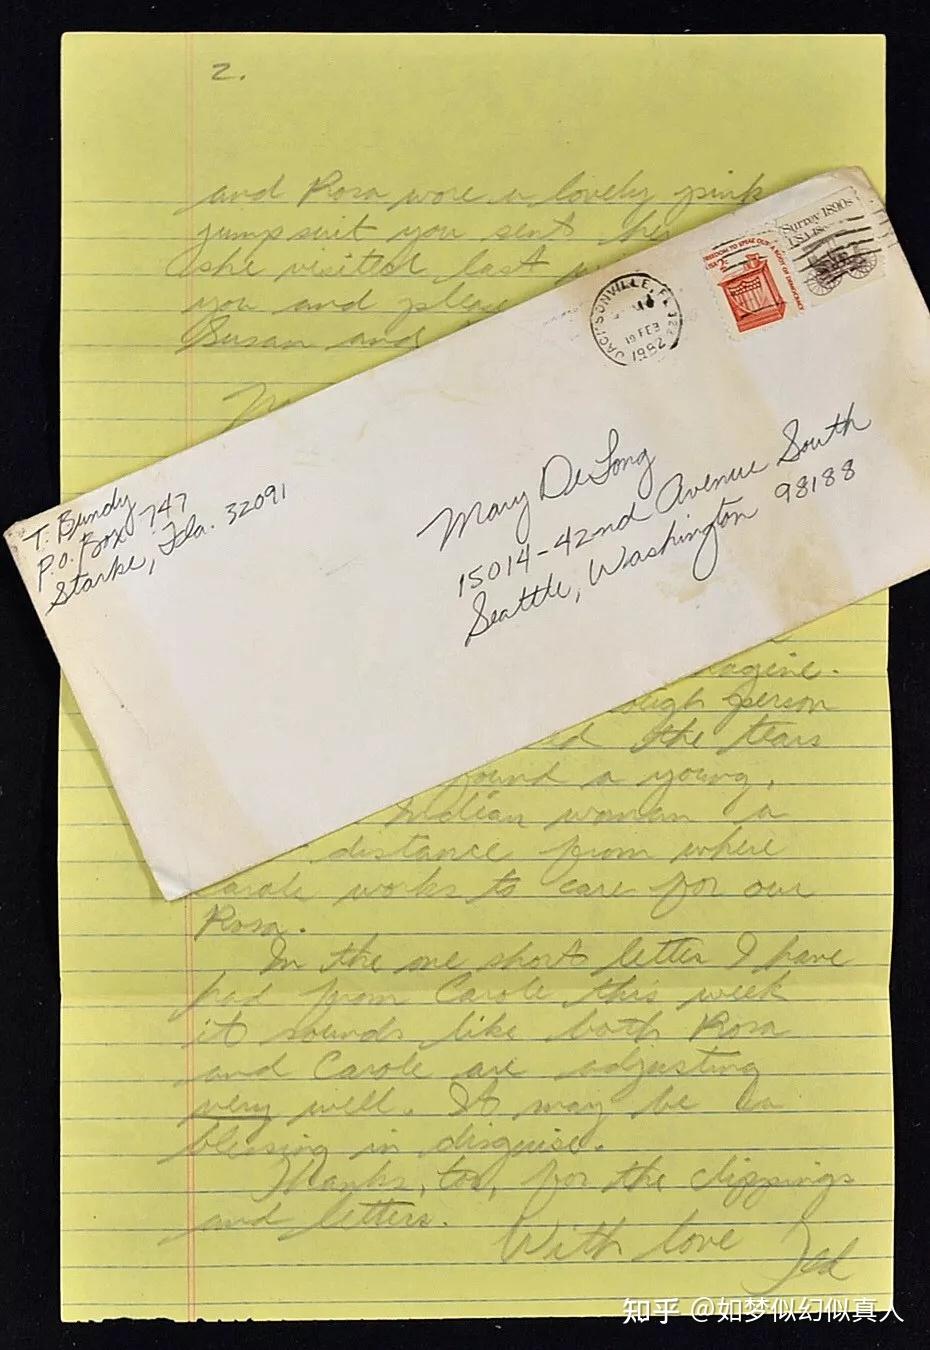 2.
and Rosa wore a lovely pink
jumpsuit you sent her
she visited last
you and please
Susan and
FREEDOM TO SPEAK OUT A ROOT OF DEMOCRACY
Surrey 1890s
USA 18c
JACKSONVILLE, FL 322
19 FEB
1982
T. Bundy
P.O. Box 747
Starke, Fla. 32091
Mary DeLong
15014-42nd Avenue South
Seattle, Washington 98188
agine.
ough person
ld the tears
found a young,
Indian woman a
distance from where
Carole works to care for our
Rosa.
In the one short letter I have
had from Carole this week
it sounds like both Rosa
and Carole are adjusting
very well. It may be a
blessing in disguise.
Thanks, too, for the clippings
and letters.
With love
Ted
知乎 @如梦似幻似真人